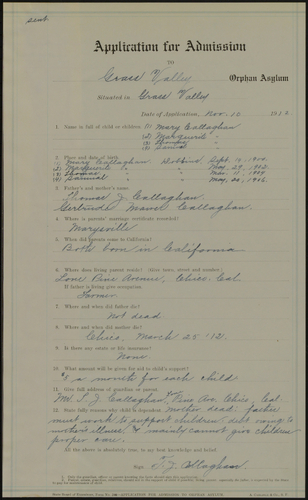 sent
Application for Admission
TO
Grass Valley Orphan Asylum
Situated in Grass Valley
Date of Application, Nov. 15 1912
1. Name in full of child or children (1) Mary Callaghan
(2) Marguerite "
(3) Thomas "
(4) Samuel "
2. Place and date of birth
Mary Callaghan Dobbins Sept.
(2) Marguerite " " Nov. 29,
(3) Thomas " " Mar.
(4) Samuel " " May 20, 1906
3. Father's and mother's name.
Thomas J. Callaghan
Gertrude Callaghan
4. Where is parents' marriage certificate recorded?
Marysville
5. When did parents come to California?
Both born in California
6. Where does living parent reside? (Give town, street and number)
Lone Pine Avenue, Chico, Cal.
If father is living give occupation
Farmer
7. Where and when did father die?
Not dead
8. Where and when did mother die?
Chico, March 25 '12.
9. Is there any estate or life insurance?
None
10. What amount will be given for aid to child's support?
a month for each child
11. Give full address of guardian or parent.
T. J. Callaghan, Pine Av. Chico, Cal.
12. State fully reasons why child is dependent. Mother dead, father
must work to support children, debt owing to
mother's illness & cannot give children
proper care.
All the above is absolutely true, to my best knowledge and belief.
Sign T. J. Callaghan